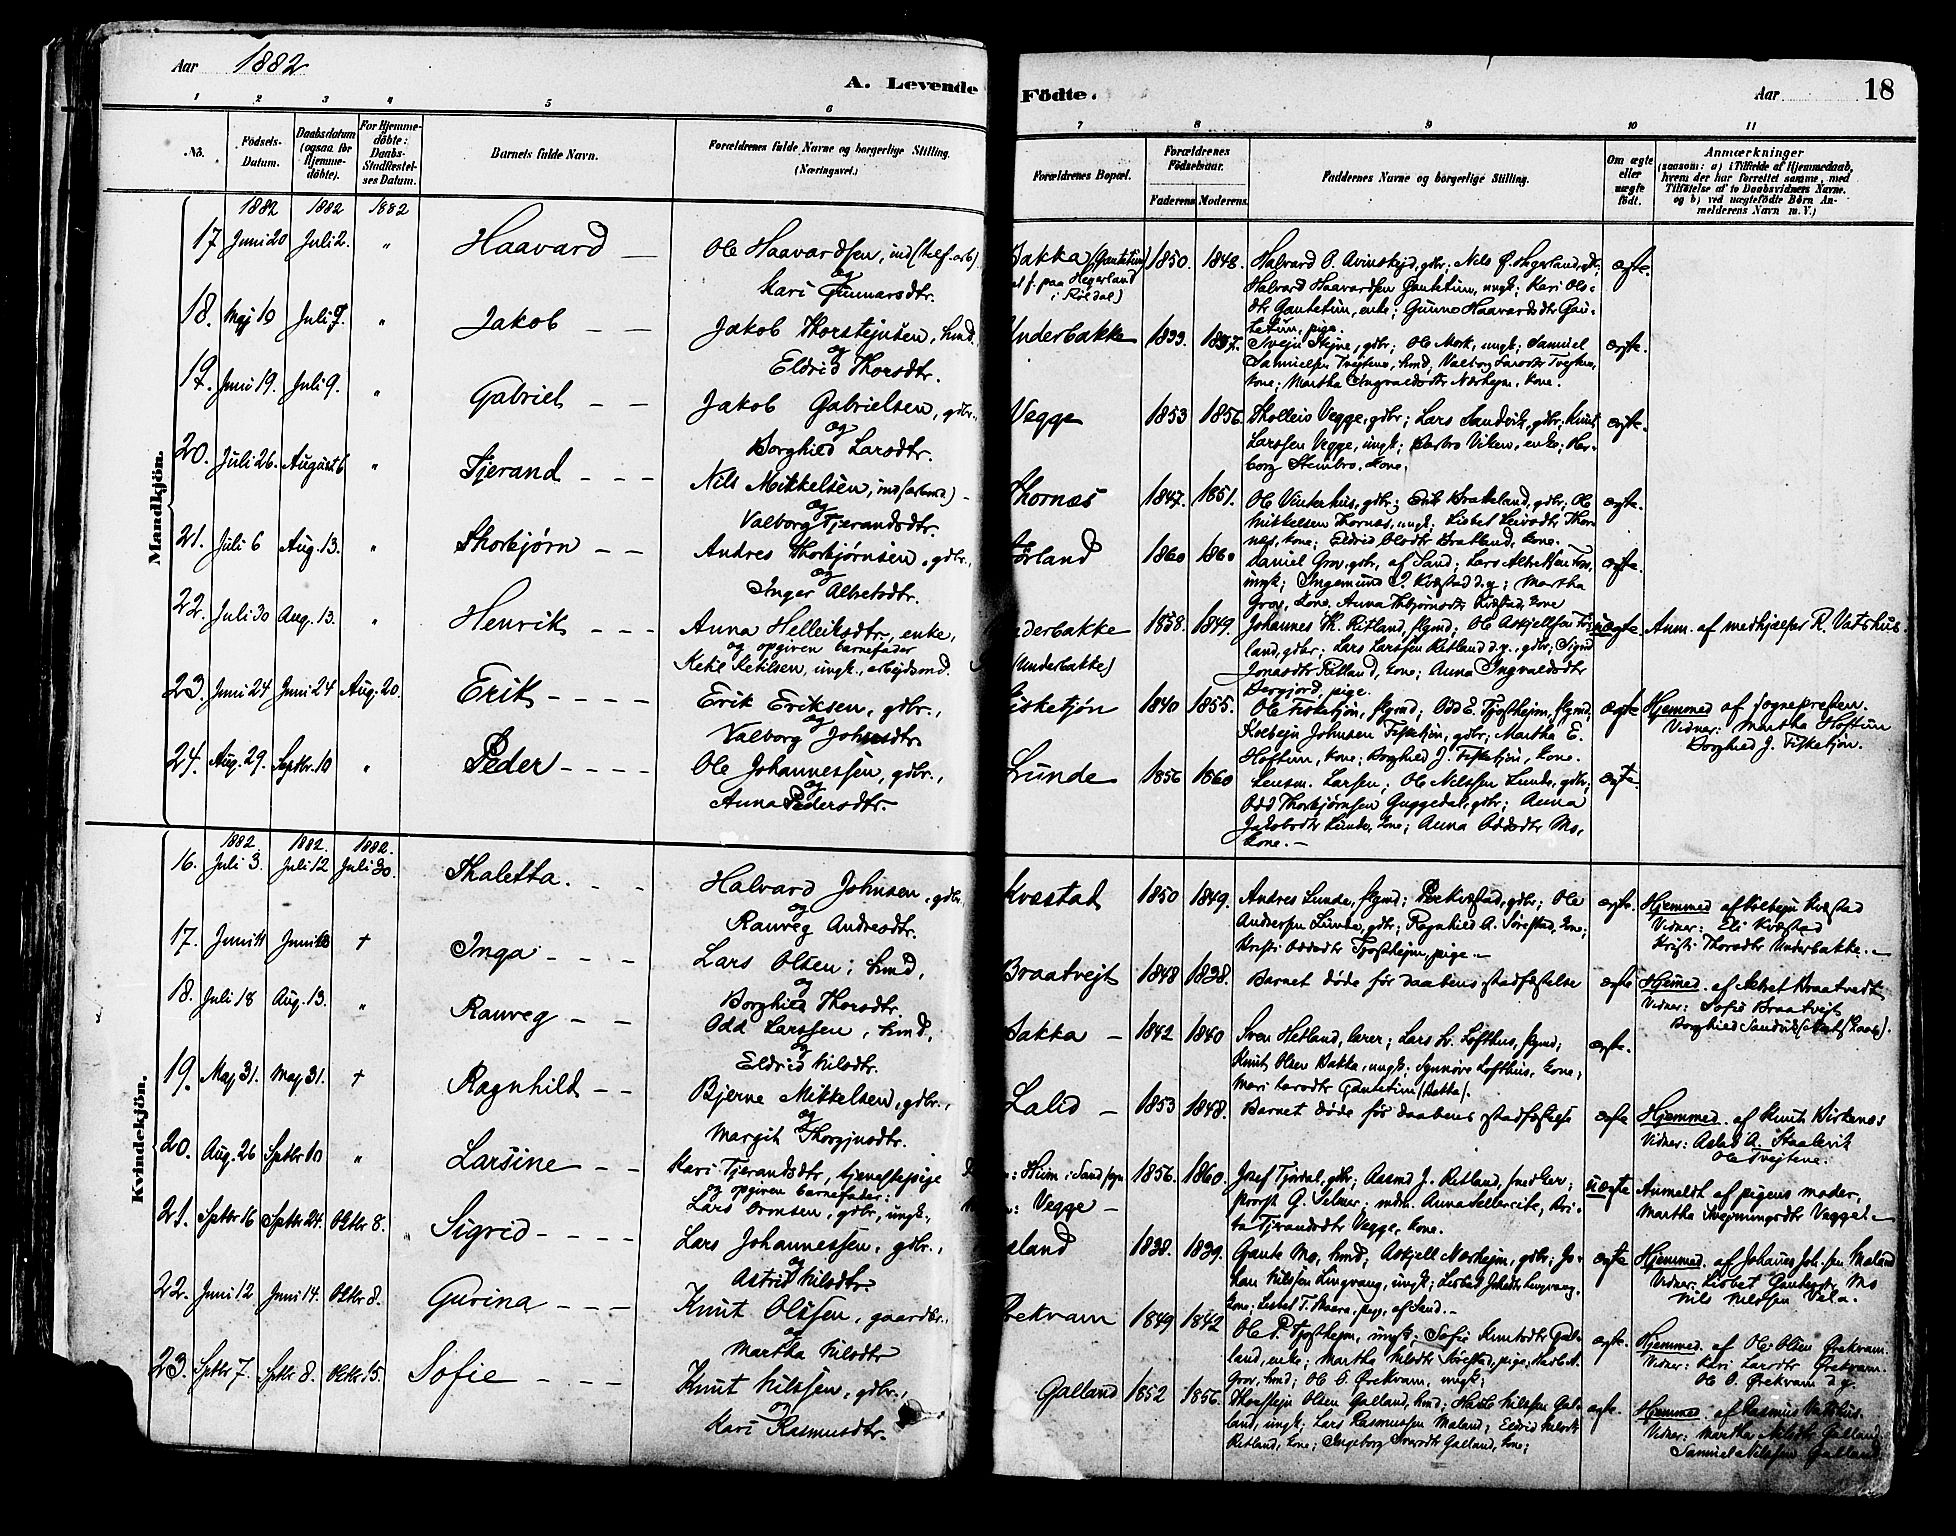 Aar 1882
A. Levende Födte.
Aar 18
1 2 3 4 5 6 7 8 9 10 11
No.
Födsels-Datum.
Daabsdatum (ogsaa for Hjemme-döbte).
For Hjemme-döbte: Daabs-Stadfæstel-ses Datum.
Barnets fulde Navn.
Forældrenes fulde Navne og borgerlige Stilling. (Næringsvei.)
Forældrenes Bopæl.
Forældrenes Födselsaar.
Faderens Moderens
Faddernes Navne og borgerlige Stilling.
Om ægte eller uægte födt.
Anmærkninger
(saasom: a) i Tilfælde af Hjemmedaab, hvem der har forrettet samme, med Tilföielse af to Daabsvidners Navne, og b) ved uægtefödte Börn An-melderens Navn m. V.)
Mandkjön.
1882 1882 1882
17 Juni 20 Juli 2. " Haavard — Ole Haavardsen, ind (self. arb)
og
Kari Gunnarsdtr.
Bakka (Gautetun) 1850. 1848.
f. paa Hegerland
i Röldal)
Halvard Haavardsen Gautetun, ungk; Kari Ols-
dtr Gautetun, enke; Gunno Haavardsdtr Gau-
tetun, pige.
ægte.
18. Maj 19 Juli 9. " Jakob — — Jakob Thorstejnsen, hmd.
og
Eldrid Thorsdtr.
Underbakke 1833. 1837.
Svejn Stejne, gdbr; Ole Mork, ungk; Samuel
Samuelsen Tvejtene, hmd; Valborg Larsdtr Tvejtene,
kone; Martha Ingvaldsdtr Nærhejm, kone.
ægte.
19. Juni 19. Juli 9. " Gabriel — — Jakob Gabrielsen, gdbr.
og
Borghild Larsdtr.
Vegge 1853 1856.
Tholleiv Vegge, gdbr; Lars Sandvik, gdbr; Knut
Larssen Vegge, ungk; Barbro Viken, enke; Her-
borg Stenbro, kone.
ægte.
20. Juli 26. August 6 " Tjerand — — — Nils Mikkelsen, ind (arbmd) —
og
Valborg Tjerandsdtr.
Thornæs 1847. 1851.
Ole Vinterhus, gdbr; Erik Bratland, gdbr; Ole
Mikkelsen Thornæs, ungk; Lisbet Leivsdtr Thor-
næs, kone; Eldrid Olsdtr Bratland, kone. —
ægte.
21. Juli 6 Aug. 13. " Thorbjørn — — Andres Thorbjørnsen, gdbr.,
og
Inger Albretsdtr.
1860 1860
Daniel Grov, gdbr, af Sand; Lars Albretsen
ungk; Ingemund Kvæstad d.y; Martha
Grov, kone; Anna Kvæstad, kone
ægte.
22. Juli 30 Aug. 13. " Henrik — — — Anna Helleiksdtr, enke,
og opgiven barnefader
Ketil Ketilsen, ungk, arbejdsmd.
Underbakke 1858. 1849.
(Underbakke)
Johannes Th. Ritland, flgmd; Ole Askjellsen
land, gdbr; Lars Larssen Ritland d.y., gdbr; Sigrid
Jonasdtr Ritland, kone; Anna Ingvaldsdtr
Bergjord, pige.
uægte. Anm. af medhjælper R. Vatshus.
23. Juni 24 Juni 24 Aug. 20. Erik — — — Erik Eriksen, gdbr.,
og
Valborg Johnsdtr.
Fisketjön 1840 1855.
Ole Fisketjön, flgmd; Odd E. Tjostheim, flgmd;
Kolbejn Johnsen Fisketjön, gdbr; Martha E.
Hoftun, kone; Borghild J. Fisketjön, kone.
ægte Hjemmed af sognepresten.
Vidner: Martha Hoftun
Borghild J. Fisketjön.
24. Aug. 29. Septbr. 10 " Peder — — — — Ole Johannessen, gdbr.,
og
Anna Pedersdtr.
Lunde 1856 1860
Lensm. Larsen; Ole Nilssen Lunde, gdbr;
Odd Thorbjørnsen Guggedal, gdbr; Anna
Jakobsdtr Lunde, kone; Anna Oddsdtr Mo,
kone. —
ægte.
Kvindekjön.
1882. 1882. 1882.
16. Juli 3. Juli 12 Juli 30. Thaletta. — — Halvard Johnsen, gdbr.,
og
Ranveg Andresdtr.
Kvæstad 1850 1849.
Andres Lunde, flgmd; Per Kvæstad, gdbr; Ole
Anderssen Lunde, gdbr; Ragnhild A. Sörestad, kone;
Kristi Oddsdtr Tjosthejm, pige. —
ægte. Hjemmed af Kolbejn Kvæstad
Vidner: Eli Kvæstad
Kristi Thorsdtr Underbakke. —
17. Juni 11 Juni 18 + Inga — — — Lars Olsen, hmd,
og
Borghild Thorsdtr.
Braatvejt 1848 1838.
Barnet döde för daabens stadfæstelse
ægte Hjemmed. af Albret Braatvedt
Vidner: Sofie Braatvejt
Borghild Sandvik
18. Juli 18 Aug. 13. " Ranveg — — Odd Larssen, hmd,
og
Eldrid Nilsdtr.
Bakka — 1842 1840
Sven Hetland, lærer; Lars L. Lofthus, flgmd;
Knut Olsen Bakka, ungk; Synnöve Lofthus, kone;
Mari Larsdtr Gautetun (Bakka).
ægte.
19. Maj 31. Maj 31. + Ragnhild — — Bjerne Mikkelsen, gdbr.,
og
Margit Thorgjusdtr.
Lalid — 1853 1848.
Barnet döde för daabens stadfæstelse
ægte Hjemmed. af Knut Birkenes
Vidner: Aslad A. Staalvik
Ole Tvejtene.
20. Aug. 26 Septbr 10 " Larsine — — Kari Tjerandsdtr, tjenestepige
og opgiven barnefader:
Lars Ormsen, gdbr, ungk,
Hiim i Sand 1856. 1860.
: Vegge —
Josef Tjördal, gdbr; Aasmd J. Ritland, snedker;
provst G. Selmer; mdm. Anna
Tjerandsdtr Vegge, kone.
uægte Anmeldt af pigens moder,
Martha Svejnungsdtr Vegge. —
21. Septbr 16 Septbr 24. Oktbr 8. Sigrid — — — — Lars Johannessen, gdbr.,
og
Astrid Nilsdtr.
Maland 1838. 1839.
Gaute Mo, hmd; Askjell Nærhejm, gdbr; Jo-
han Nilssen Lingvang, ungk; Lisbet Lingvang,
kone; Lisbet T. Skaara, pige, af Sand. —
ægte Hjemmed. af Johannes Joh.sen Maland
Vidner: Lisbet Mo
Nils Nilssen Vela.
22. Juni 12 Juni 14. Oktbr 8. Gurina — — — Knut Olssen, gaardbr.,
og
Martha Nilsdtr
Örekvam 1849 1842
Ole P. Tjosthejm, ungk; Sofie Knutsdtr Gal-
land, enke; Martha Nilsdtr Sörestad, pige;
Grov, hmd; Ole O. Örekvam, ungk;
ægte. Hjemmed. af Ole Olsen Örekvam.
Vidner: Kari Larsdtr Örekvam.
Ole O. Örekvam d.y.
23. Septbr 7. Septbr 8. Oktbr 15. Sofie — — — Knut Nilssen, gdbr.,
og
Kari Rasmusdtr.
Galland 1852 1856.
Thorstejn Olsen Galland, hmd; Nilssen Gal-
land, ungk; Lars Rasmussen Maland; Eldrid Nilsdtr
Ritland, kone; Ingeborg Galland, kone;
ægte. Hjemmed. af Rasmus Vatshus.
Vidner: Martha Nilsdtr Galland
Samuel Nilssen Galland